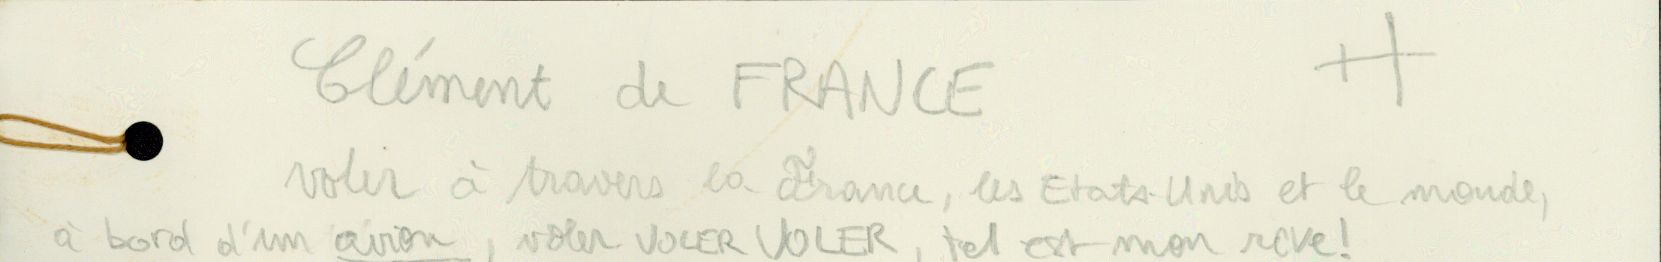 Clément de FRANCE
voler à travers la France, les Etats-Unis et le monde,
à bord d'un avion, voler VOLER VOLER, tel est mon rêve!